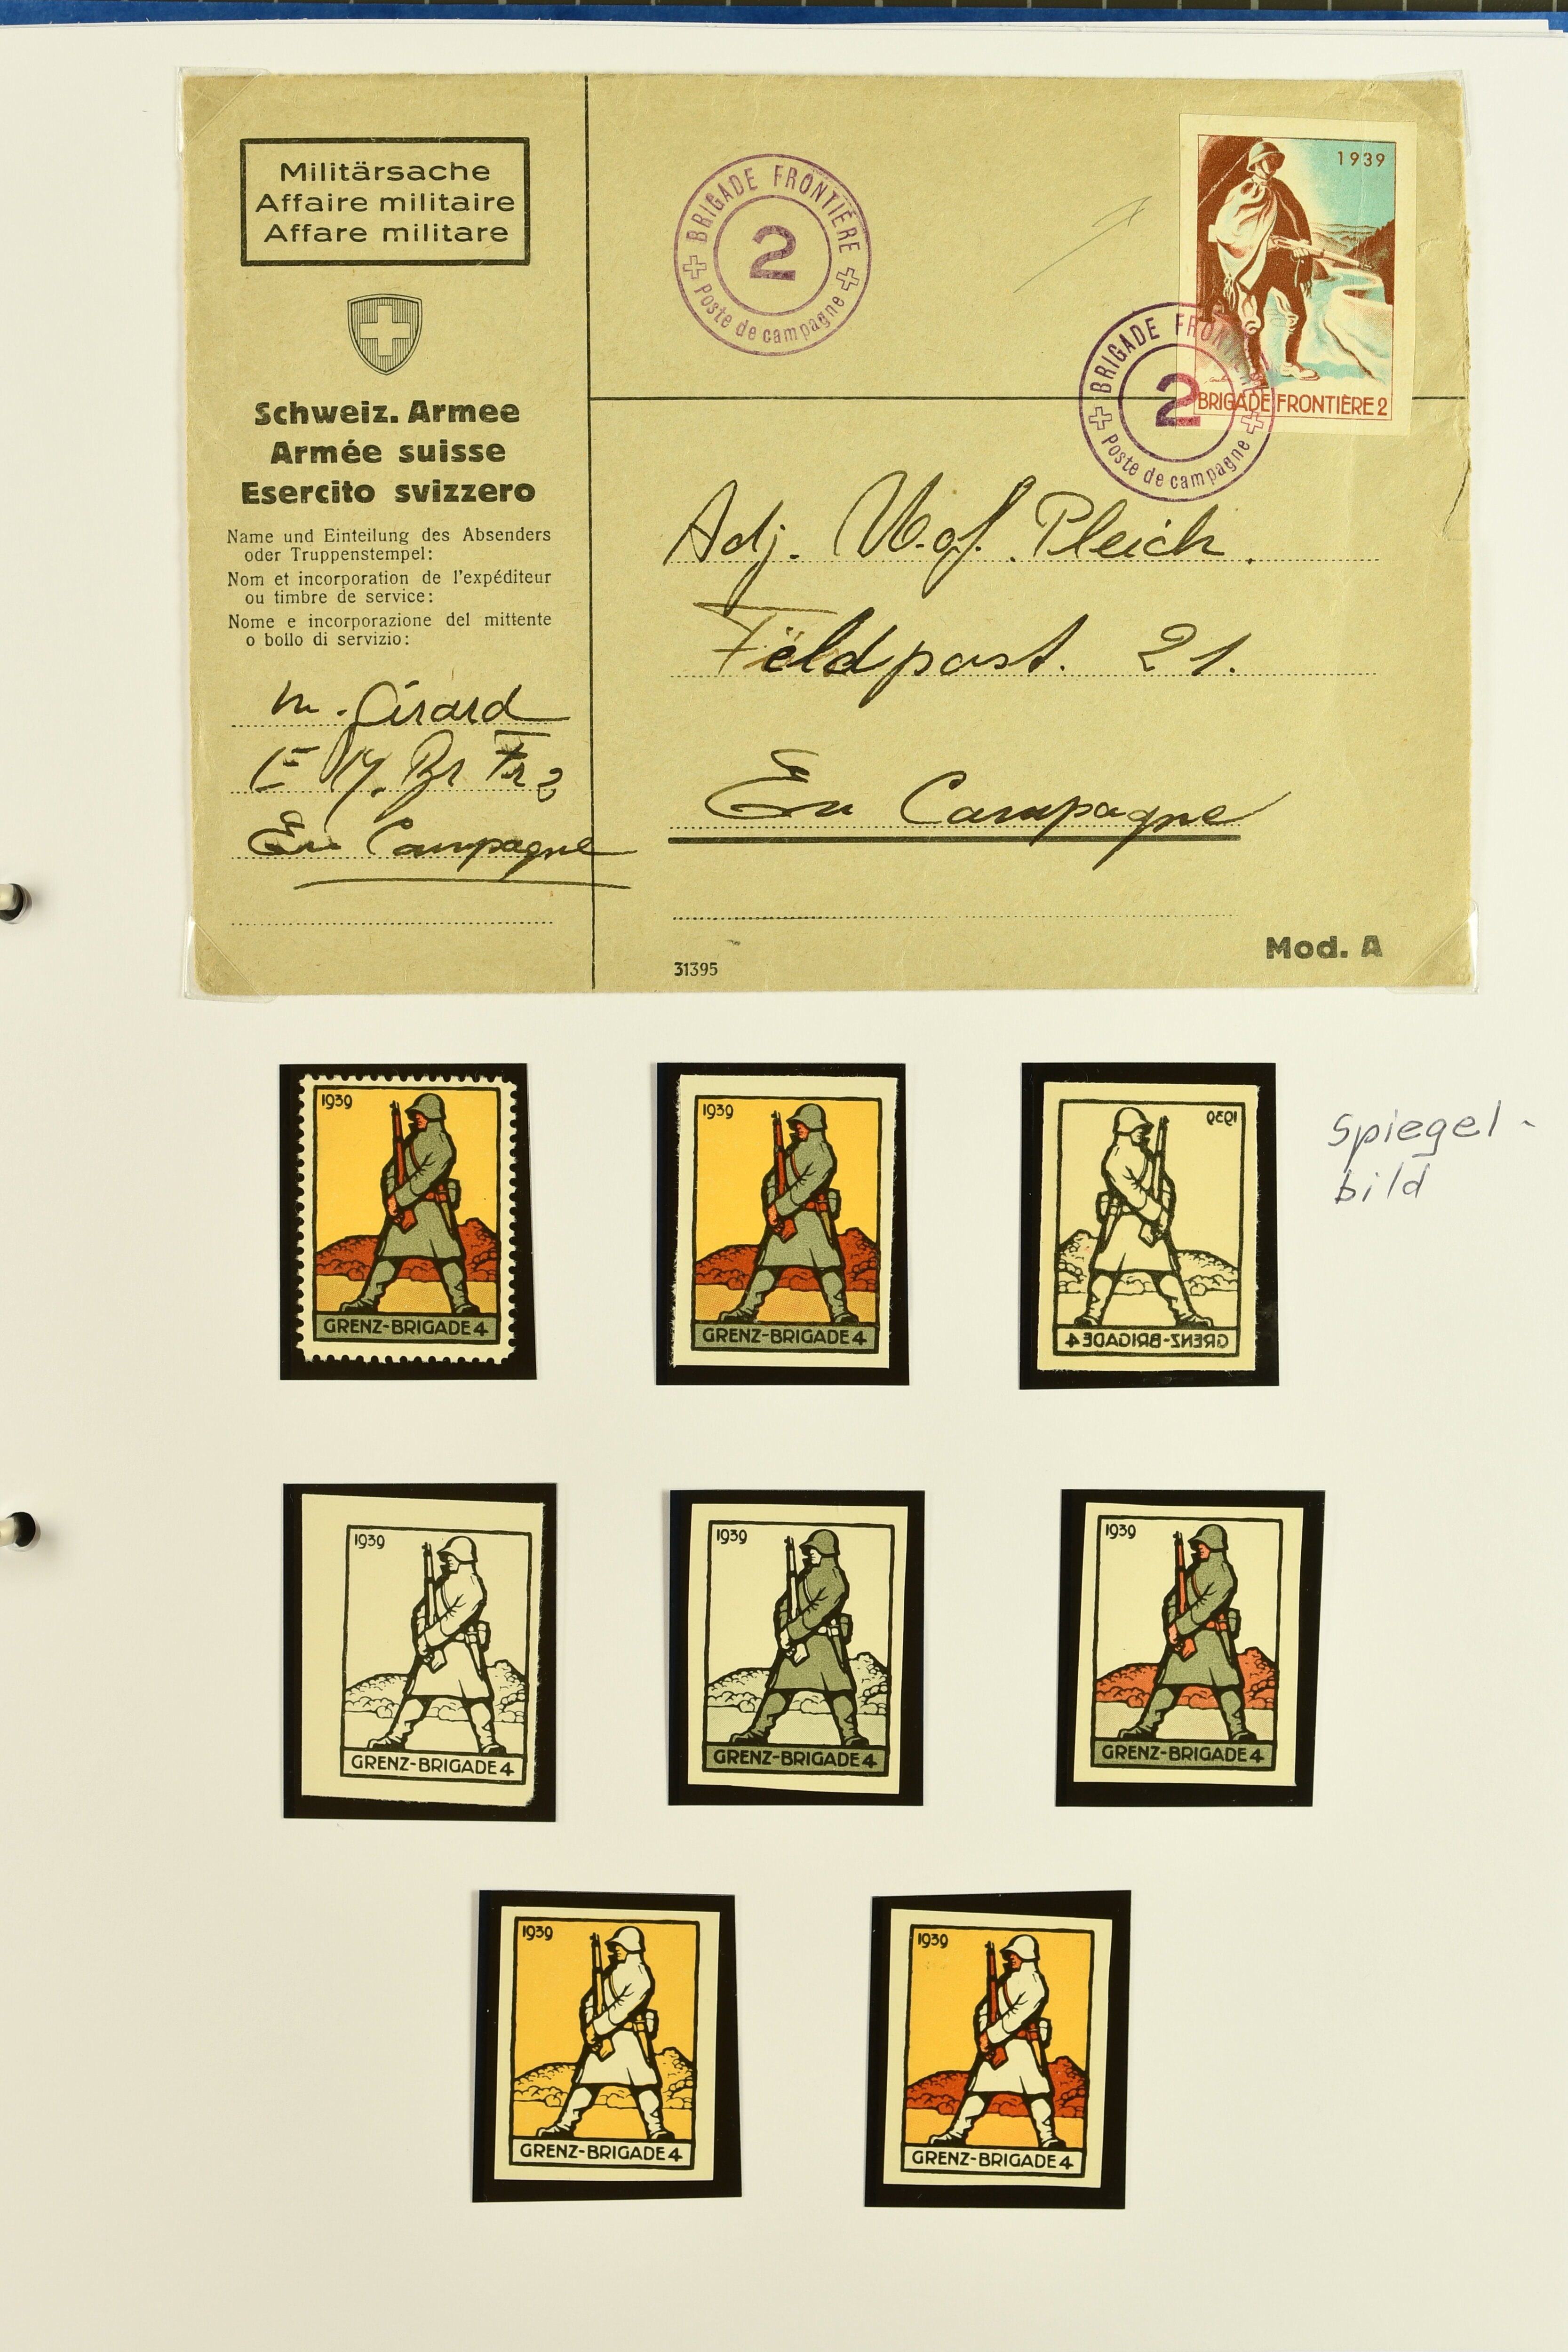 Militärsache
Affaire militaire
Affare militare
Schweiz. Armee
Armée suisse
Esercito svizzero
Name und Einteilung des Absenders
oder Truppenstempel:
Nom et incorporation de l'expéditeur
ou timbre de service:
Nome e incorporazione del mittente
o bollo di servizio:
m. Girard
Br Fr 2
En Campagne
BRIGADE FRONTIÈRE
2
Poste de campagne
1939
BRIGADE FRONTIÈRE 2
BRIGADE FRONTIÈRE
2
Poste de campagne
Adj. Uof. Pleich
Feldpost. 21.
En Campagne
31395
Mod. A
1939
GRENZ-BRIGADE 4
1939
GRENZ-BRIGADE 4
1939
GRENZ-BRIGADE 4
Spiegel-
bild
1939
GRENZ-BRIGADE 4
1939
GRENZ-BRIGADE 4
1939
GRENZ-BRIGADE 4
1939
GRENZ-BRIGADE 4
1939
GRENZ-BRIGADE 4